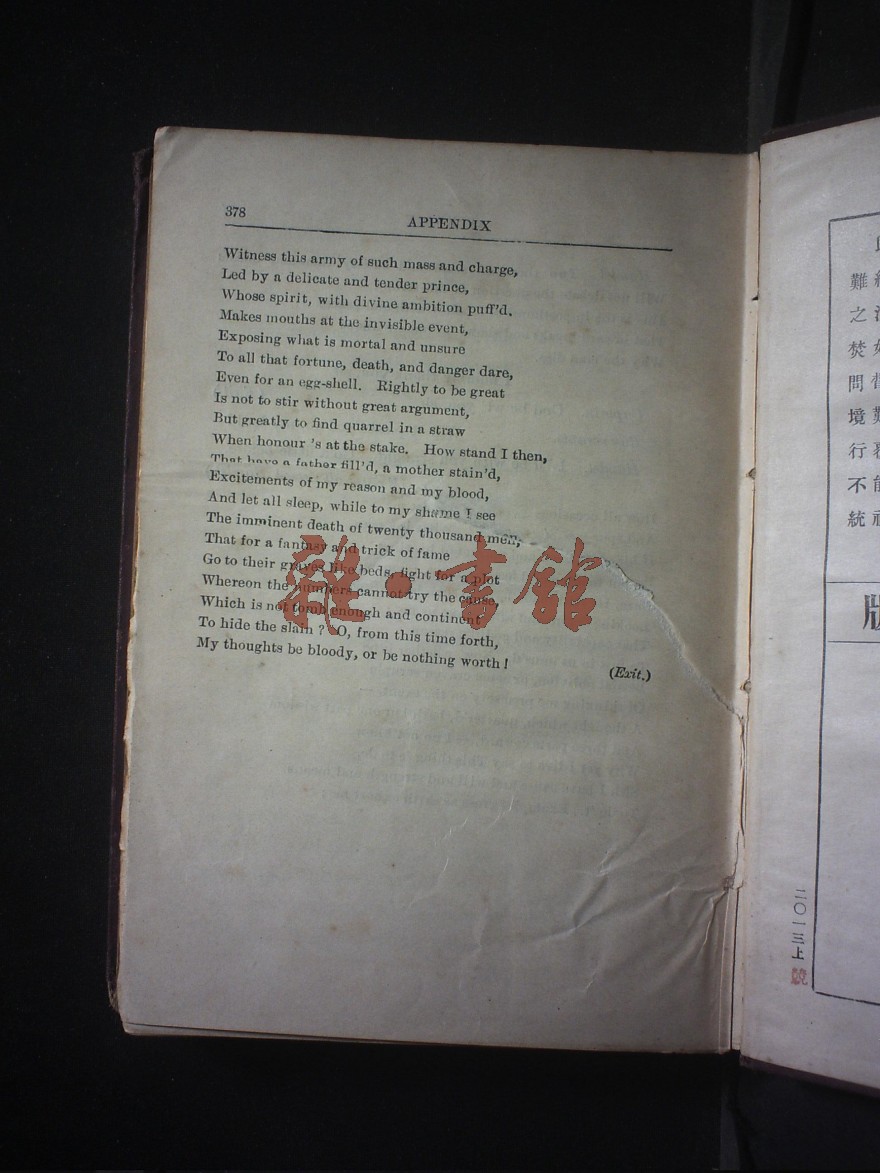 378
APPENDIX
Witness this army of such mass and charge,
Led by a delicate and tender prince,
Whose spirit, with divine ambition puff'd.
Makes mouths at the invisible event,
Exposing what is mortal and unsure
To all that fortune, death, and danger dare,
Even for an egg-shell. Rightly to be great
Is not to stir without great argument,
But greatly to find quarrel in a straw
When honour 's at the stake. How stand I then,
That have a father fill'd, a mother stain'd,
Excitements of my reason and my blood,
And let all sleep, while to my shame I see
The imminent death of twenty thousand men,
That for a fantasy and trick of fame
Go to their graves like beds, fight for a plot
Whereon the numbers cannot try the cause,
Which is not tomb enough and continent
To hide the slain ? O, from this time forth,
My thoughts be bloody, or be nothing worth !
(Exit.)
雜·書館
難之焚問境行不統
版
二〇一三上